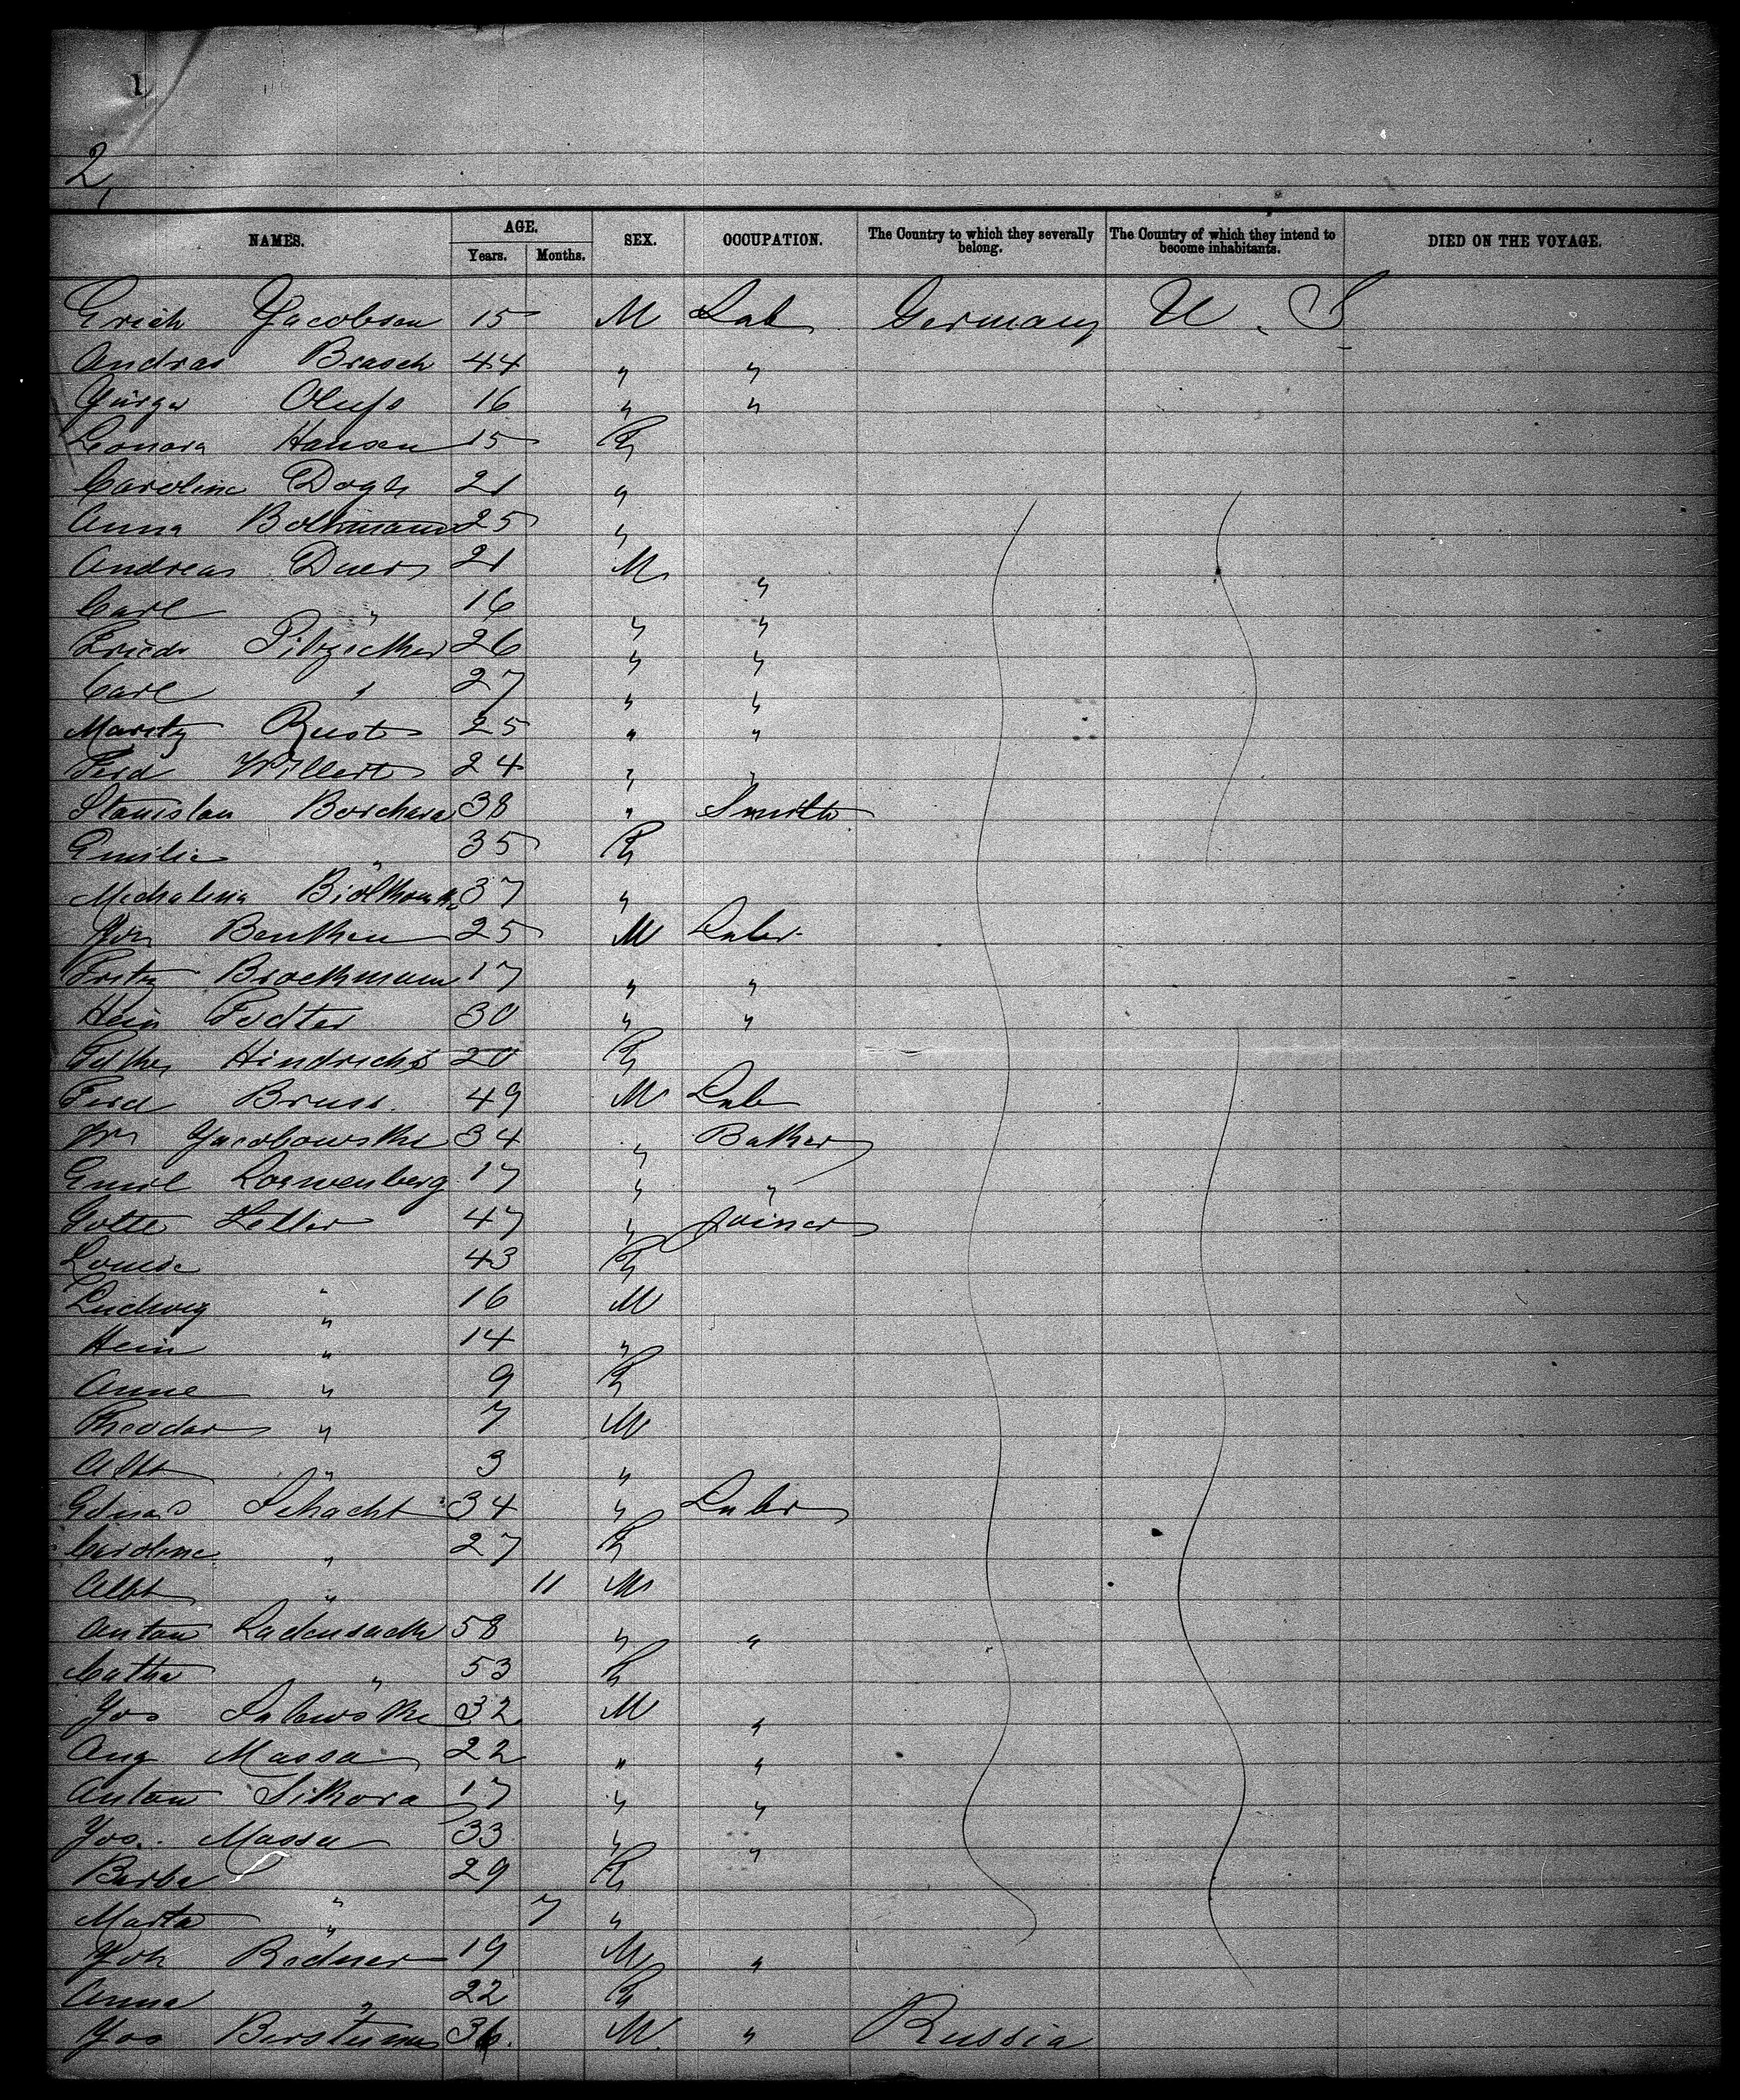 1
2,
NAMES. AGE. SEX. OCCUPATION. The Country to which they severally belong. The Country of which they intend to become inhabitants. DIED ON THE VOYAGE.
Years. Months.
Erich Jacobsen 15 M Lab Germany U. S
Andras Brasch 44 " "
Jürgn Olufs 16 " "
Leonora Hansen 15 F
Caroline 21 "
Anna Boltmann 25 "
Andreas Duers 21 M "
Carl " 16 " "
Friedr 26 " "
Carl " 27 " "
Moritz Rust 25 " "
Ferd Willert 24 " "
Stanislau Borchard 38 " Smith
Emilie " 35 F
Michalina 37 "
Joh Benthen 25 M Labr
Fritz Brockmann 17 " "
Hein Fedter 30 " "
Hindrichs 20 F
Ferd Bruss. 49 M Lab
Wm Jacobowski 34 " Baker
Emil Loewenberg 17 " "
Gottl Zeller 47 " Joiner
Louise " 43 F
Ludwig " 16 M
Hein " 14 "
Anne " 9 F
Theodor " 7 M
Albt " 3 "
Eduard Schacht 34 " Labr
Caroline " 27 F
Albt " 11 M
Anton Ladensack 58 " "
Cathe " 53 F
Jos Salewski 32 M "
Aug Massa 22 " "
Anton Sikora 17 " "
Jos. Massa 33 " "
Barba " 29 F
Marta " 7 "
Joh Redner 19 M "
Anna " 22 F
Jos 36. M. " Russia